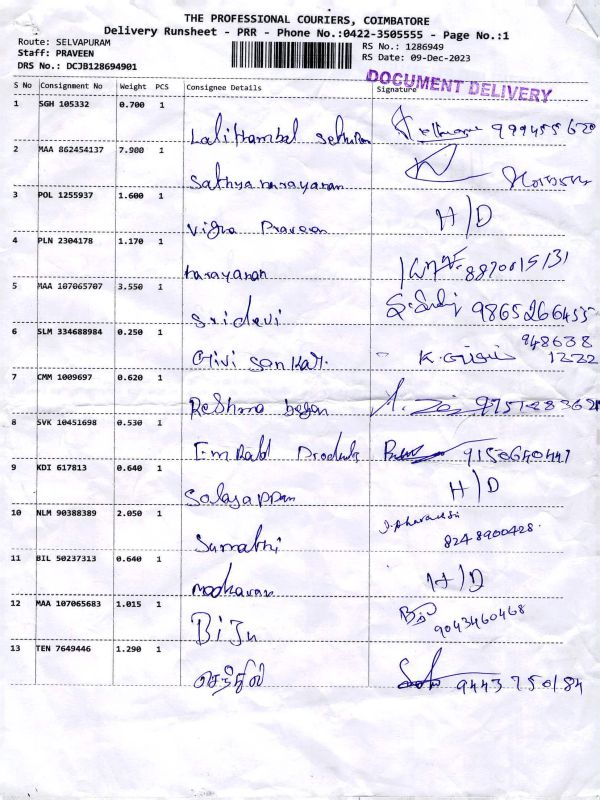 THE PROFESSIONAL COURIERS, COIMBATORE
Delivery Runsheet - PRR - Phone No.:0422-3505555 - Page No.:1
Route: SELVAPURAM
RS No.: 1286949
Staff: PRAVEEN
RS Date: 09-Dec-2023
DRS No.: DCJB128694901
DOCUMENT DELIVERY
S No Consignment No Weight PCS Consignee Details Signature
1 SGH 105332 0.700 1
2 MAA 862454137 7.900 1
Sathya narayanan
3 POL 1255937 1.600 1
Praveen H/D
4 PLN 2304178 1.170 1
narayanan 8870015131
5 MAA 107065707 3.550 1
Sridevi 9865266455
6 SLM 334688984 0.250 1
Givi Sankar. K. 948638
1222
7 CMM 1009697 0.620 1
Reshma began
8 SVK 10451698 0.530 1
Emrald Products 9150640447
9 KDI 617813 0.640 1
Salayappan H/D
10 NLM 90388389 2.050 1
Sumathi 8248900428.
11 BIL 50237313 0.640 1
madhavan H/D
12 MAA 107065683 1.015 1
BiJu 9043460468
13 TEN 7649446 1.290 1
செந்தில் 9443750184